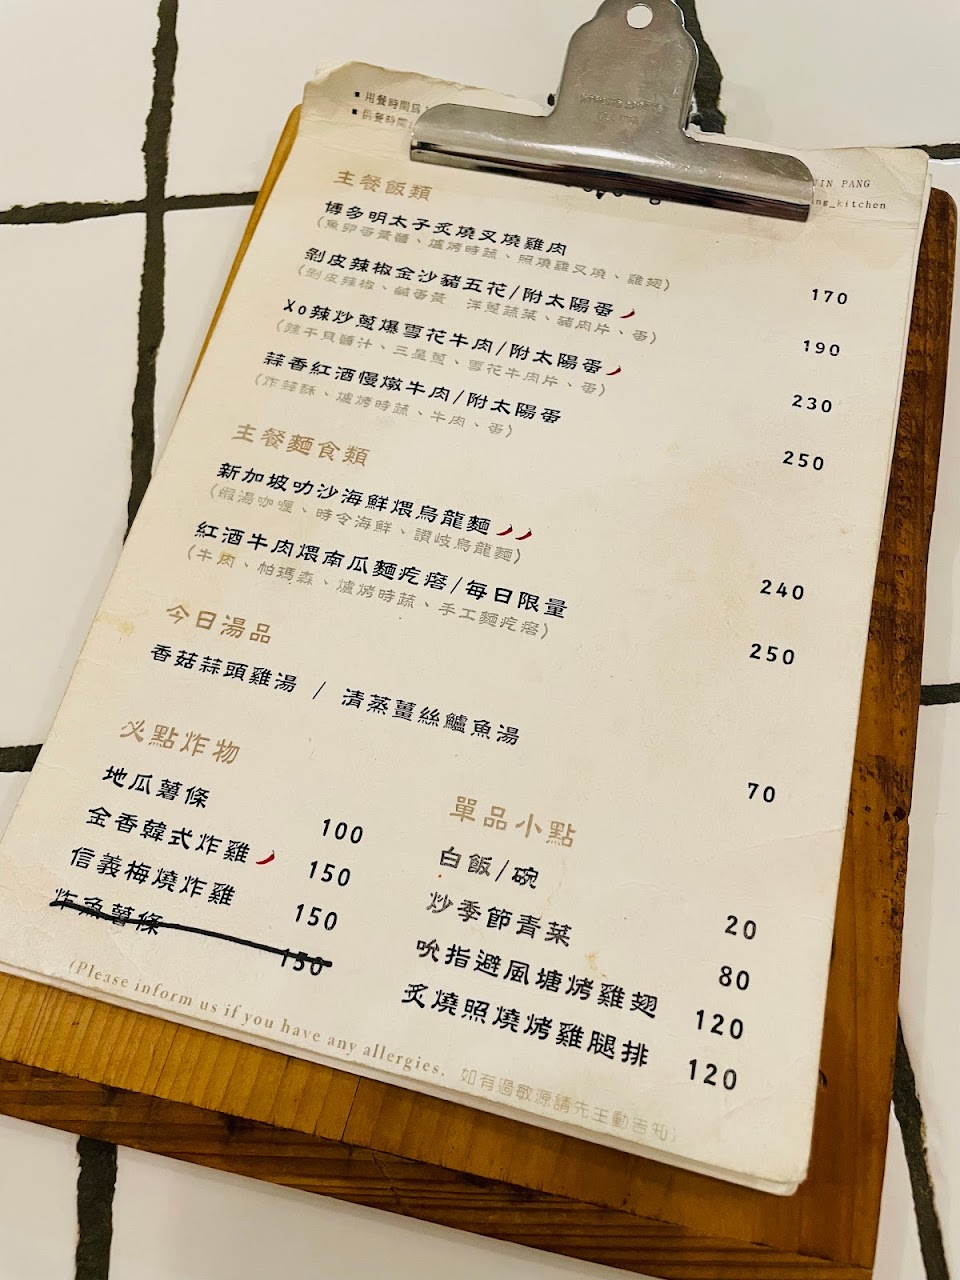 用餐時間為
供餐時間
JIN PANG
ng_kitchen
主餐飯類
博多明太子炙燒叉燒雞肉 170
(魚卵蛋黃醬、爐烤時蔬、照燒雞叉燒、雞翅)
剝皮辣椒金沙豬五花/附太陽蛋 190
(剝皮辣椒、鹹蛋黃 洋蔥蔬菜、豬肉片、蛋)
Xo辣炒蔥爆雪花牛肉/附太陽蛋 230
(辣干貝醬汁、三星蔥、雪花牛肉片、蛋)
蒜香紅酒慢燉牛肉/附太陽蛋 250
(炸蒜酥、爐烤時蔬、牛肉、蛋)
主餐麵食類
新加坡叻沙海鮮煨烏龍麵 240
(蝦湯咖喱、時令海鮮、讚岐烏龍麵)
紅酒牛肉煨南瓜麵疙瘩/每日限量 250
(牛肉、帕瑪森、爐烤時蔬、手工麵疙瘩)
今日湯品
香菇蒜頭雞湯 / 清蒸薑絲鱸魚湯 70
必點炸物
地瓜薯條 100
金香韓式炸雞 150
信義梅燒炸雞 150
炸魚薯條 150
單品小點
白飯/碗 20
炒季節青菜 80
吮指避風塘烤雞翅 120
炙燒照燒烤雞腿排 120
(Please inform us if you have any allergies. 如有過敏源請先主動告知)